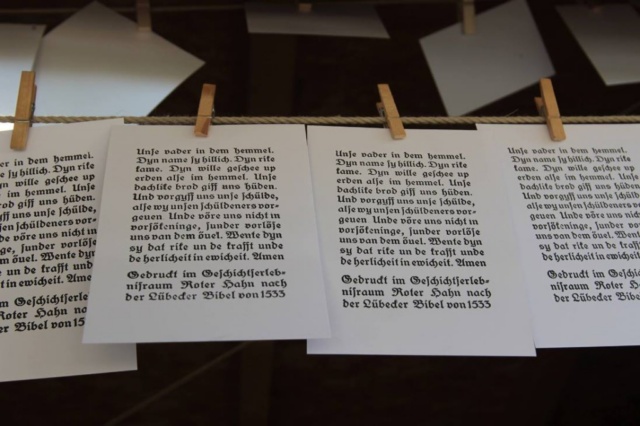 in dem hemmel.
sy hillich. Dyn rike
Dyn wille geschee up
im hemmel. Unse
brod giff uns hüden.
uns unse schülde,
schüldeners vor-
vöre uns nicht in
sunder vorlöse
övel. Wente dyn
un de krafft unde
in ewicheit. Amen
im Geschichtserleb-
Roter Hahn nach
Bibel von 1533
Unse vader in dem hemmel.
Dyn name sy hillich. Dyn rike
kame. Dyn wille geschee up
erden alse im hemmel. Unse
dachlike brod giff uns hüden.
Und vorgyff uns unse schülde,
alse wy unsen schüldeners vor-
geuen Unde vöre uns nicht in
vorsökeninge, sunder vorlöse
uns van dem övel. Wente dyn
sy dat rike un de krafft unde
de herlicheit in ewicheit. Amen
Gedruckt im Geschichtserleb-
nisraum Roter Hahn nach
der Lübecker Bibel von 1533
Unse vader in dem hemmel.
Dyn name sy hillich. Dyn rike
kame. Dyn wille geschee up
erden alse im hemmel. Unse
dachlike brod giff uns hüden.
Und vorgyff uns unse schülde,
alse wy unsen schüldeners vor-
geuen Unde vöre uns nicht in
vorsökeninge, sunder vorlöse
uns van dem övel. Wente dyn
sy dat rike un de krafft unde
de herlicheit in ewicheit. Amen
Gedruckt im Geschichtserleb-
nisraum Roter Hahn nach
der Lübecker Bibel von 1533
Unse vader in dem hemmel.
Dyn name sy hillich. Dyn rike
kame. Dyn wille geschee up
erden alse im hemmel. Unse
dachlike brod giff uns hüden.
Und vorgyff uns unse schülde,
alse wy unsen schüldeners vor-
geuen Unde vöre uns nicht in
vorsökeninge, sunder vorlöse
uns van dem övel. Wente dyn
sy dat rike un de krafft unde
de herlicheit in ewicheit.
Gedruckt im Geschichtserleb-
nisraum Roter Hahn nach
der Lübecker Bibel von 1533